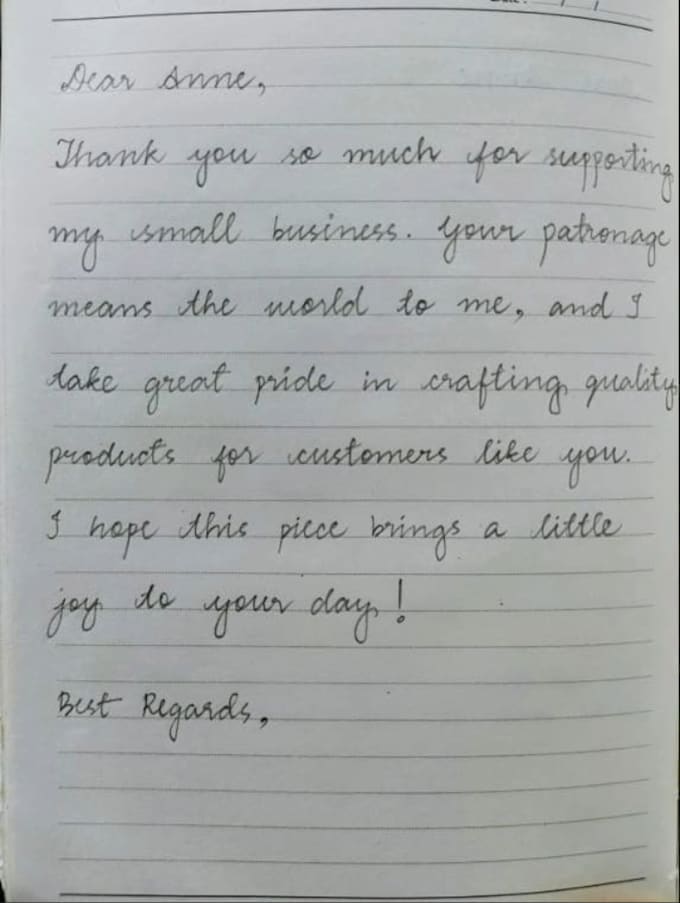 Dear Anne,
Thank you so much for supporting
my small business. Your patronage
means the world to me, and I
take great pride in crafting quality
products for customers like you.
I hope this piece brings a little
joy to your day!
Best Regards,